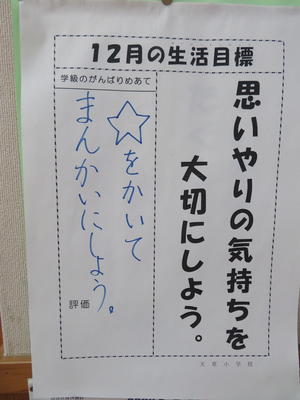 12月の生活目標
思いやりの気持ちを
大切にしよう。
学級のがんばりめあて
☆をかいて
まんかいにしよう。
評価